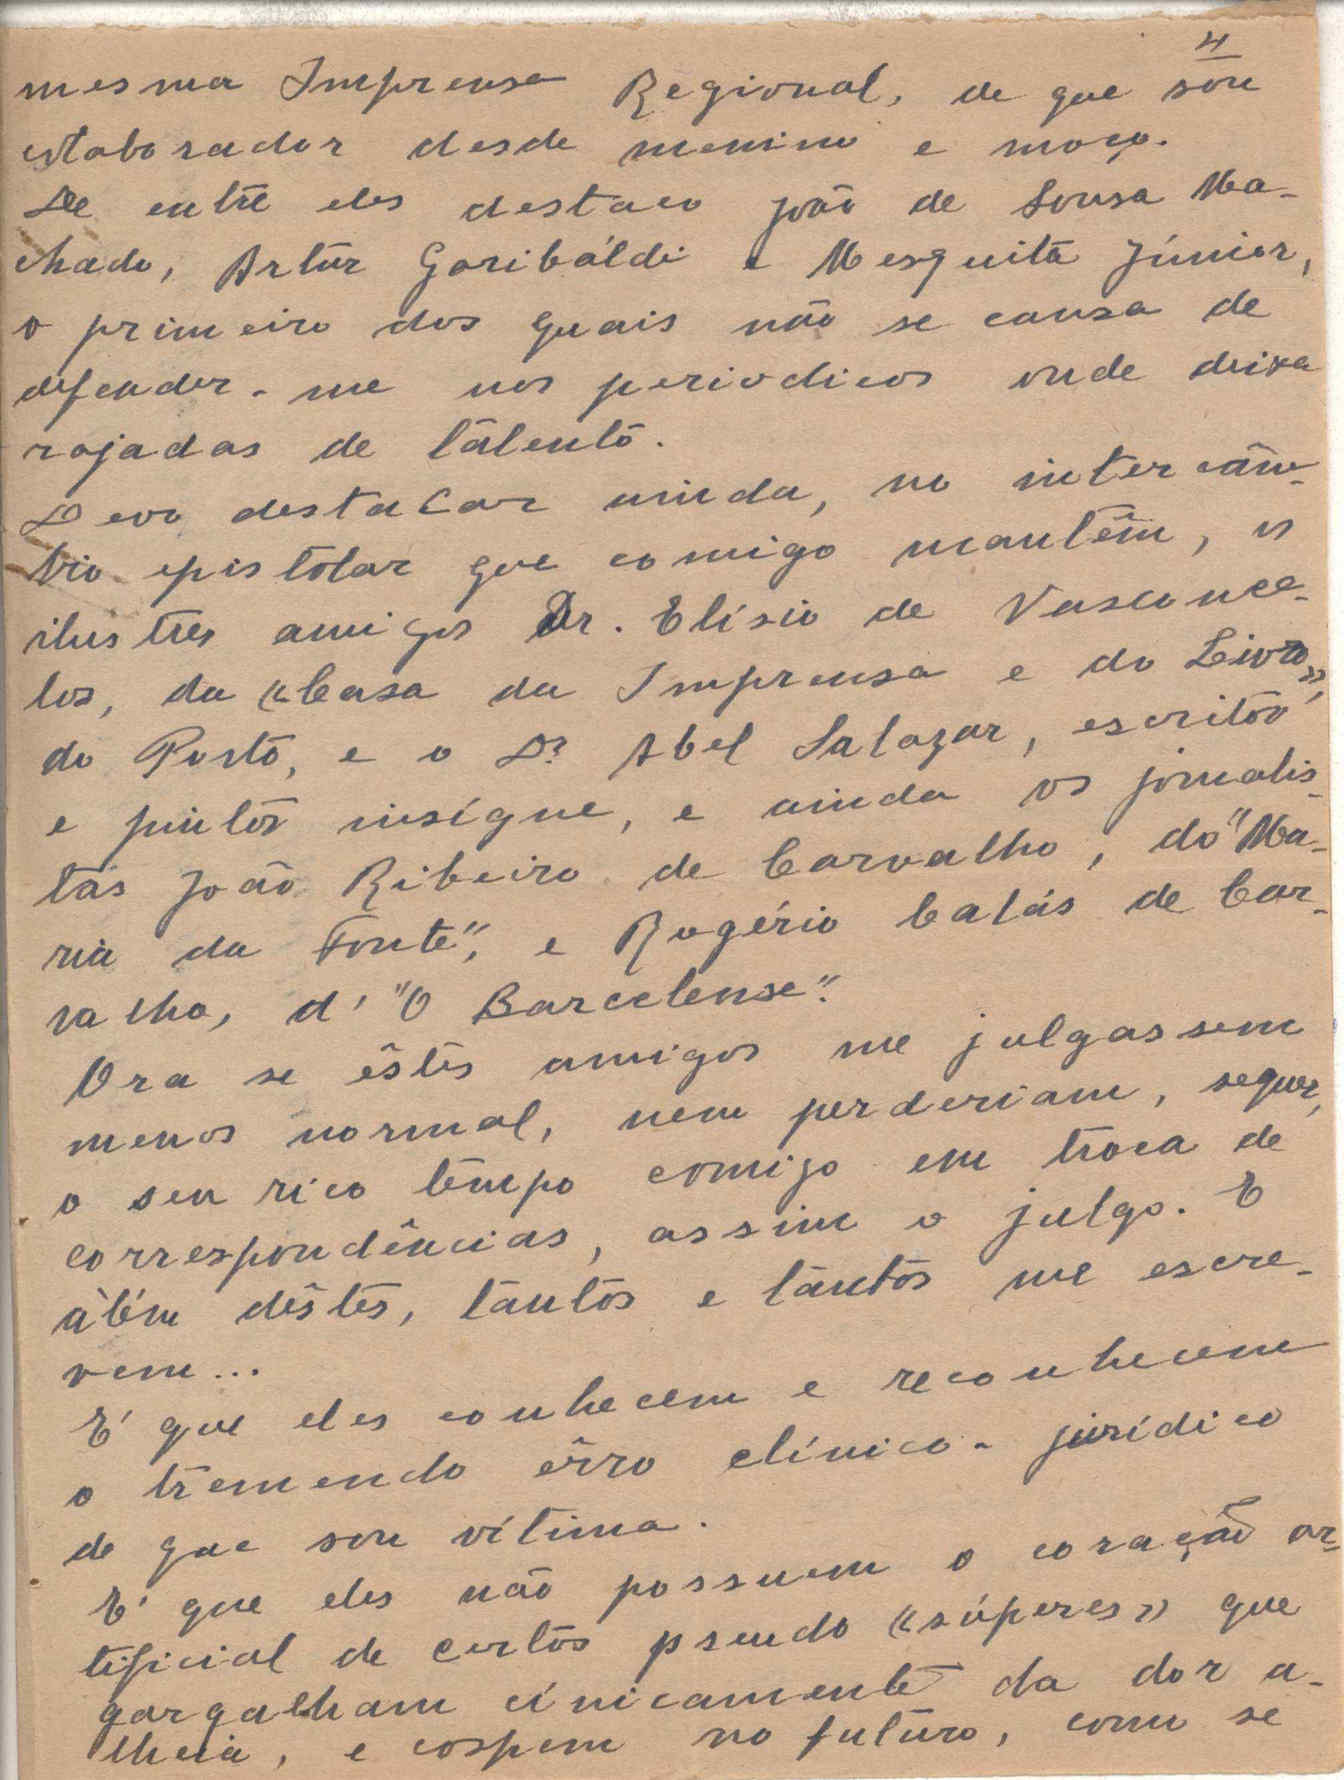 4
mesma Imprensa Regional, de que sou
colaborador desde menino e moço.
De entre eles destaco João de Sousa Ma-
chado, Artur Garibáldi e Mesquita Júnior,
o primeiro dos quais não se cansa de
defender-me nos periodicos onde deixa
rajadas de talento.
Devo destacar ainda, no intercâm-
bio epistolar que comigo mantêm, os
ilustres amigos Dr. Elísio de Vasconce-
los, da «Casa da Imprensa e do Livro»,
do Porto, e o Dr. Abel Salazar, escritor
e pintor insígne, e ainda os jornalis-
tas João Ribeiro de Carvalho, do "Ma-
ria da Fonte", e Rogério Calás de Car-
valho, d' "O Barcelense".
Ora se êstes amigos me julgassem
menos normal, nem perderiam, sequer,
o seu rico tempo comigo em troca de
correspondências, assim o julgo. E
àlém dêstes, tantos e tantos me escre-
vem...
E' que eles conhecem e reconhecem
o tremendo êrro clínico-jurídico
de que sou vítima.
E' que eles não possuem o coração ar-
tificial de certos pseudo «súperes» que
gargalham cínicamente da dor a-
lheia, e cospem no futuro, como se